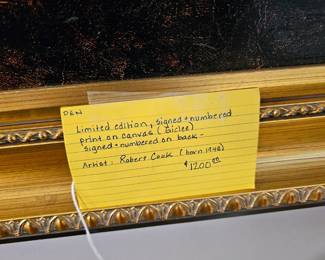 DEN
Limited edition, signed + numbered
print on canvas (Giclee)
signed + numbered on back -
Artist: Robert Cook (born 1948)
$1200.00